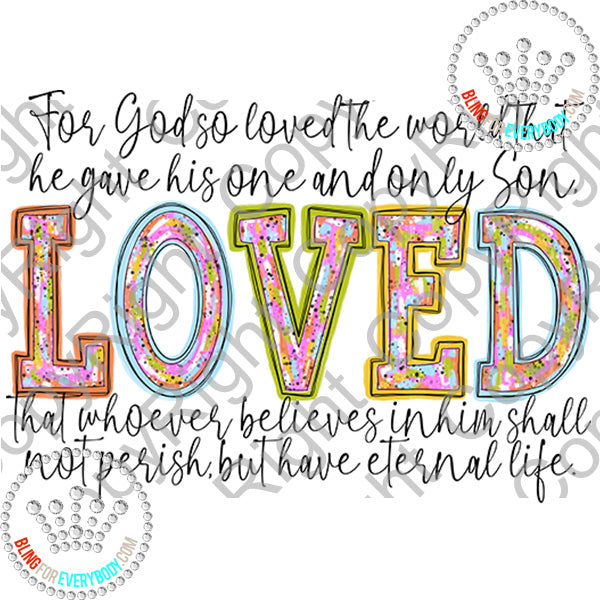 BLINGFOREVERYBODY.COM
For God so loved the world that
he gave his one and only Son,
LOVED
that whoever believes in him shall
not perish, but have eternal life.
BLINGFOREVERYBODY.COM
CopyRight CopyRight CopyRight